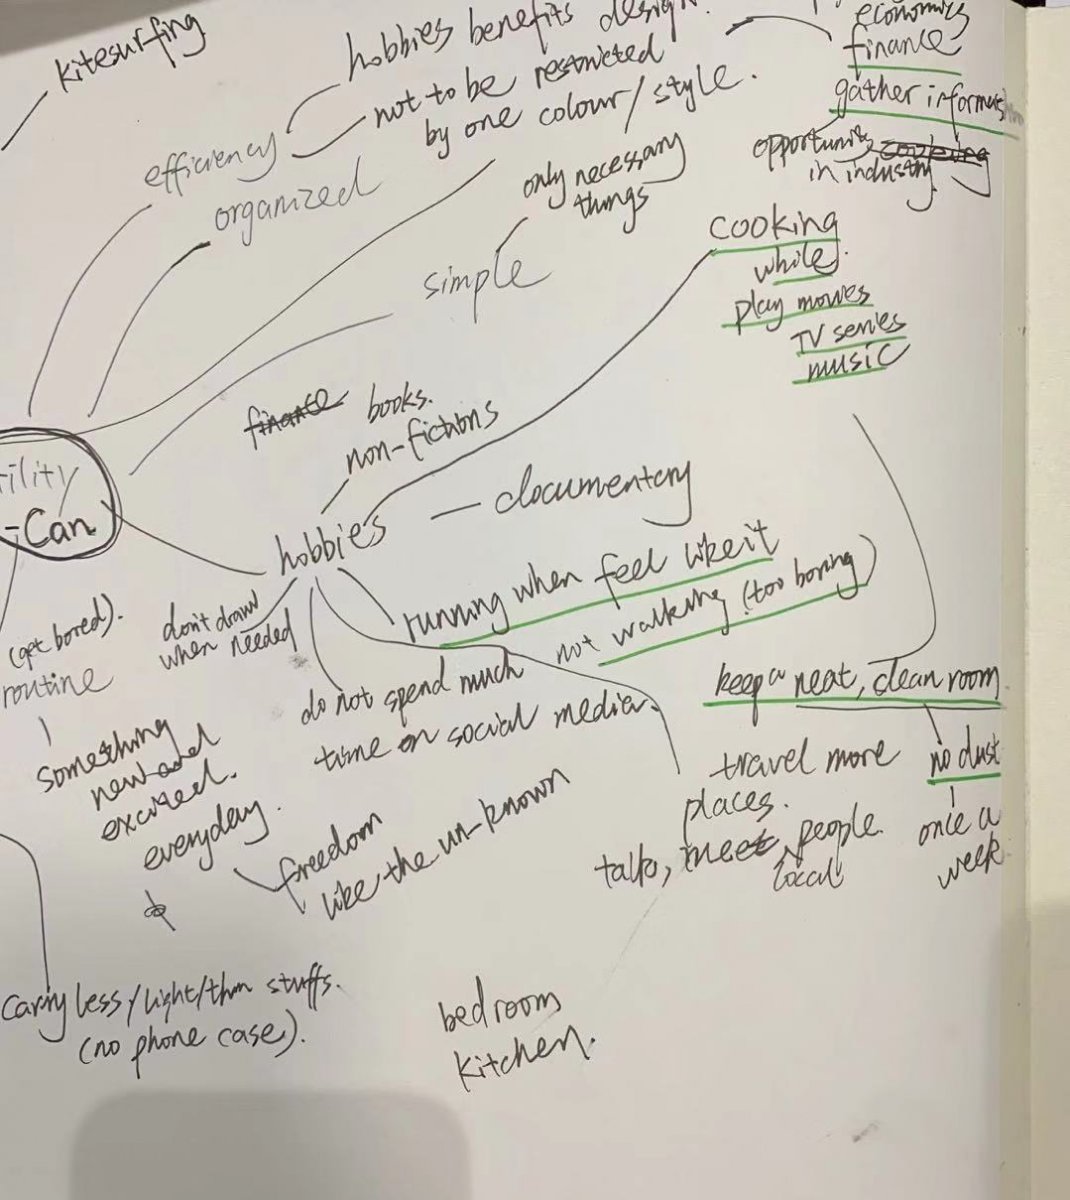 kitesurfing
hobbies benefits design.
not to be restricted
by one colour/style.
efficiency
organized
only necessary
things
simple
economics
finance
gather informa
opportunity
in industry
cooking
while.
play movies
TV series
music
finance
books.
non-fictions
documentary
hobbies
ility
-Can
running when feel like it
not walking (too boring)
don't draw
when needed
do not spend much
time on social media.
(get bored).
routine
something
new and
excited.
everyday.
freedom
like the un-known
keep a neat, clean room.
no dust
once a
week.
travel more
places.
talk, meet people.
local
carry less/light/thin stuffs.
(no phone case).
bedroom
kitchen.